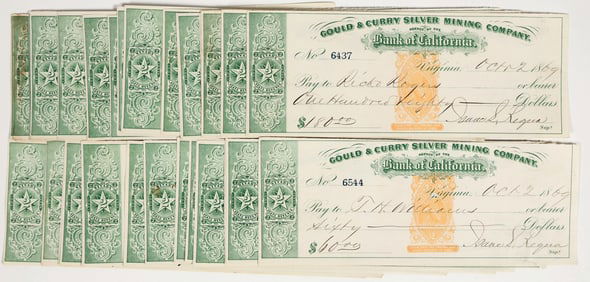 GOULD & CURRY SILVER MINING COMPANY.
AGENCY OF THE
Bank of California.
No. 6437
Virginia, Oct 2 1869
Pay to Ricks Rogers or bearer
One Hundred Eighty Dollars
$180.00
Supt.
GOULD & CURRY SILVER MINING COMPANY.
AGENCY OF THE
Bank of California.
No. 6544
Virginia, Oct 2 1869
Pay to J. H. Williams or bearer
Sixty Dollars
$60.00
Supt.